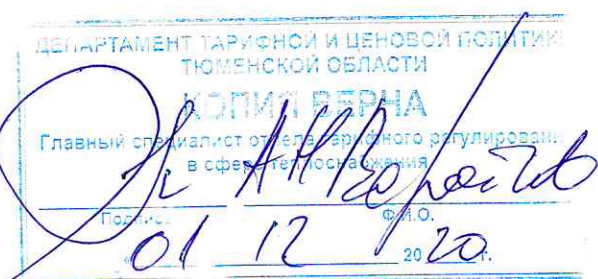 ДЕПАРТАМЕНТ ТАРИФНОЙ И ЦЕНОВОЙ ПОЛИТИКИ
ТЮМЕНСКОЙ ОБЛАСТИ
КОПИЯ ВЕРНА
Главный специалист отдела тарифного регулирования
в сфере теплоснабжения
Подпись Ф.И.О.
« 01 12 20 20 г.